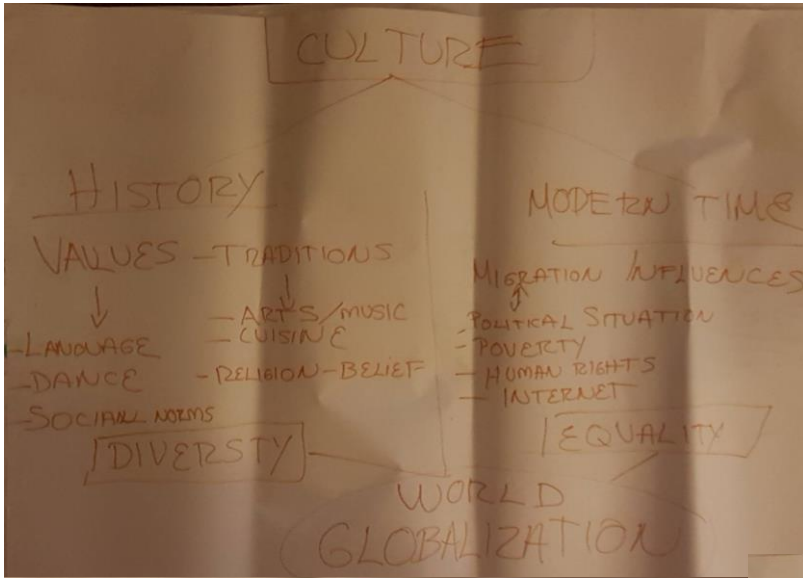 CULTURE
HISTORY
VALUES - TRADITIONS
- LANGUAGE
- DANCE
- SOCIALL NORMS
- ARTS/MUSIC
- CUISINE
- RELIGION - BELIEF
DIVERSTY
MODERN TIME
MIGRATION INFLUENCES
- POLITICAL SITUATION
- POVERTY
- HUMAN RIGHTS
- INTERNET
EQUALITY
WORLD
GLOBALIZATION